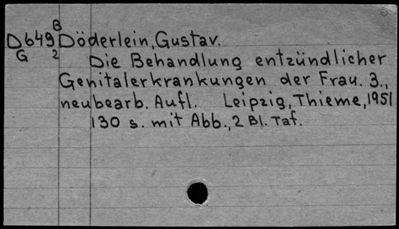 B
D649 Döderlein, Gustav.
G 2 Die Behandlung entzündlicher
Genitalerkrankungen der Frau. 3.,
neubearb. Aufl. Leipzig, Thieme, 1951
130 s. mit Abb., 2 Bl. Taf.